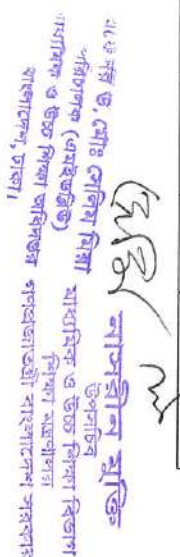 ড. মোঃ সেলিম মিয়া
পরিচালক
মাধ্যমিক ও উচ্চ শিক্ষা অধিদপ্তর
বাংলাদেশ, ঢাকা।
নাসরীন মুক্তি
উপসচিব
মাধ্যমিক ও উচ্চ শিক্ষা বিভাগ
শিক্ষা মন্ত্রণালয়
গণপ্রজাতন্ত্রী বাংলাদেশ সরকার